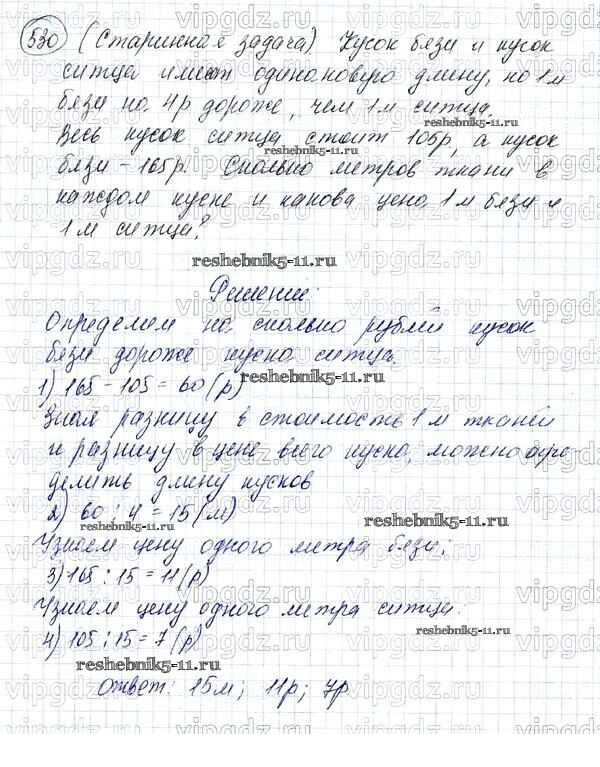 530 (Старинная задача) Кусок бязи и кусок
ситца имеют одинаковую длину, но 1 м
бязи на 4р дороже, чем 1 м ситца.
Весь кусок ситца стоит 105р, а кусок
бязи - 165р. Сколько метров ткани в
каждом куске и какова цена 1 м бязи и
1 м ситца?
reshebnik5-11.ru
Решение:
Определим на сколько рублей кусок
бязи дороже куска ситца.
1) 165 - 105 = 60 (р)
Зная разницу в стоимость 1 м тканей
и разницу в цене всего куска, можно опре
делить длину кусков
2) 60 : 4 = 15 (м)
Узнаем цену одного метра бязи:
3) 165 : 15 = 11 (р)
Узнаем цену одного метра ситца.
4) 105 : 15 = 7 (р)
reshebnik5-11.ru
Ответ: 15м; 11р; 7р
vipgdz.ru